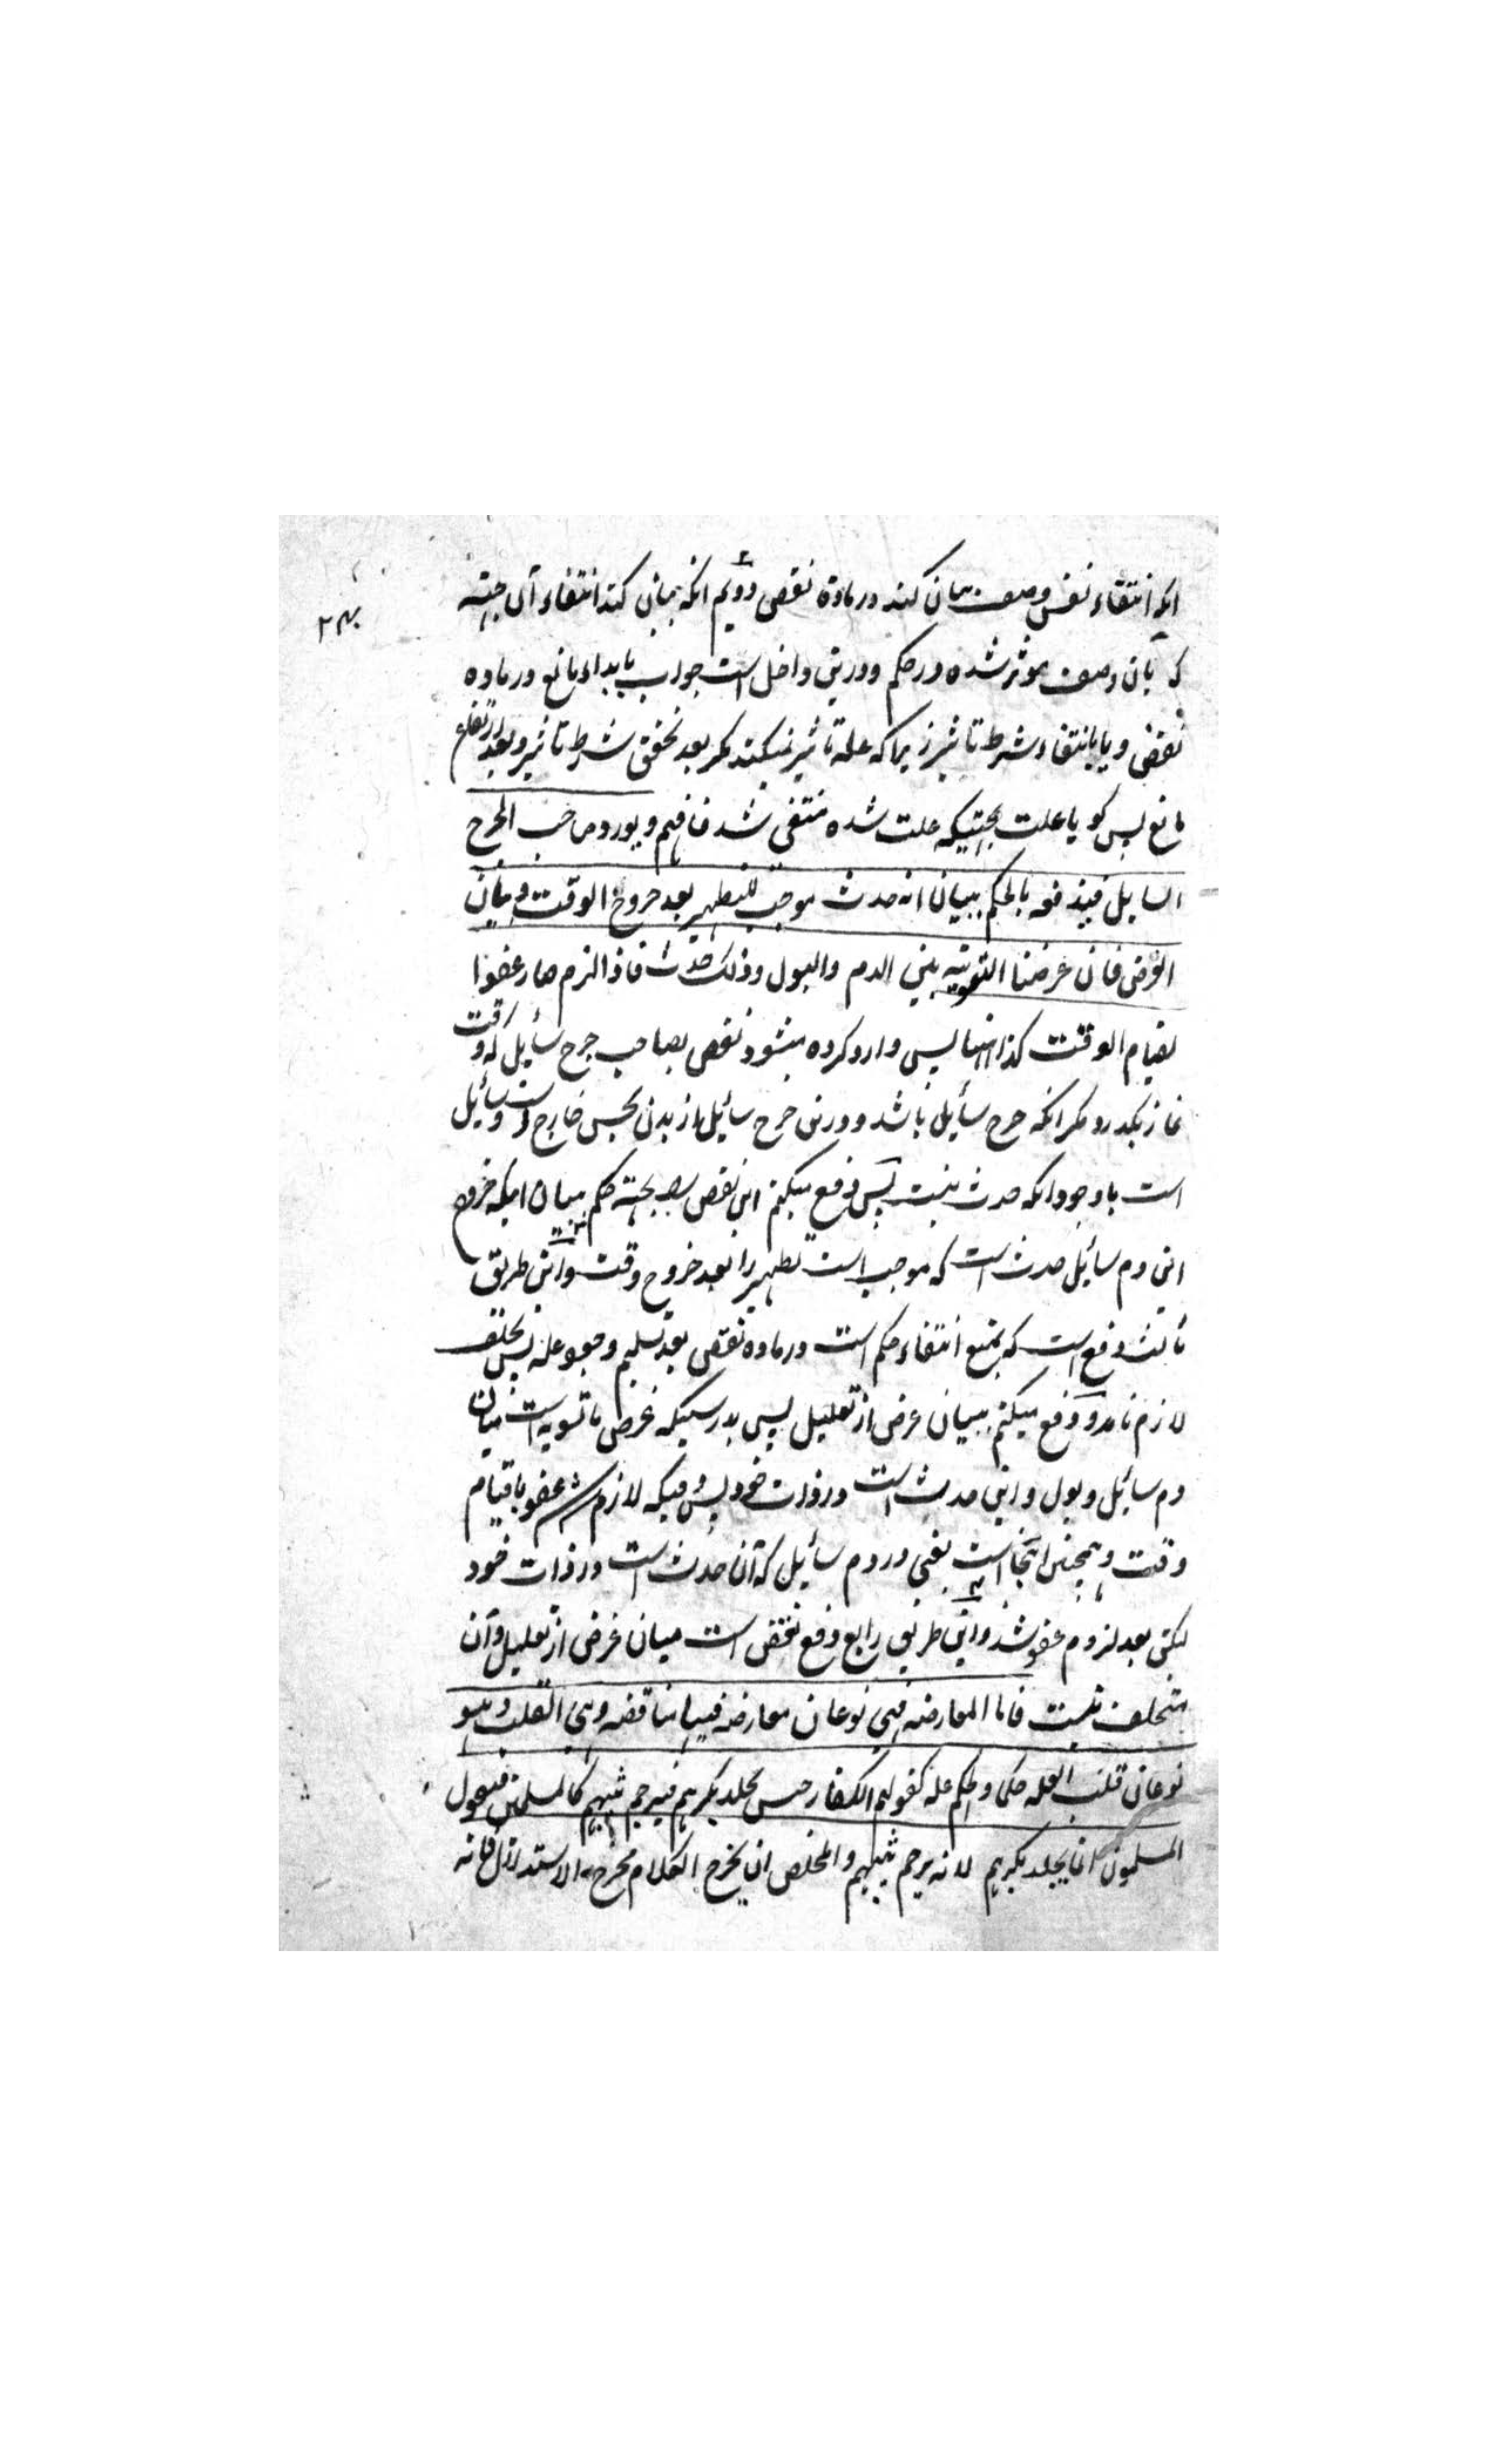 انکه انتفاء نفس وصف بیان کند در ماده نقض دویم انکه بیان کند انتفاء آن جهته
که بآن وصف موثر شده در حکم و درین داخل است جواب بابداء مانع در ماده
نقض و یا بانتفاء شرط تاثیر زیراکه علة تاثیر نمیکند مکر بعد تحقق شرط تاثیر و بعد ارتفاع
مانع پس کویا علت بجهتیکه علت شده منتفی شد فافهم ویورد صاحب الجرح
السایل فیدفعه بالحکم ببیان انه حدث موجب للتطهیر بعد خروج الوقت وبیان
الغرض فان غرضنا التسویة بین الدم والبول وذلک حدث فاذا لزم صار عفوا
لقیام الوقت کذا هنا پس وارد کرده میشود نقض بصاحب جرح سائل که وقت
نماز نکذرد مکر انکه جرح سائل باشد و درین جرح سائل از بدن نجس خارج است و سائل
است باوجود انکه حدث نیست پس دفع میکنم این نقض را بجهة حکم ببیان اینکه خروج
این دم سائل حدث است که موجب است تطهیر را بعد خروج وقت و این طریق
ثالث دفع است که بمنع انتفاء حکم است در ماده نقض بعد تسلیم وجود علة پس تخلف
لازم نامد و دفع میکنم ببیان غرض از تعلیل پس بدرستیکه غرض ما تسویه است میان
دم سائل و بول و این حدث است در ذات خود پس وقتیکه لازم شد عفو با قیام
وقت و همچنین اینجا است یعنی در دم سائل که آن حدث است در ذات خود
لیکن بعد لزوم عفو شد و این طریق رابع دفع نقض است ببیان غرض از تعلیل و آن
متخلف نیست فاما المعارضة فهی نوعان معارضة فیها مناقضة وهی القلب وهو
نوعان قلب العلة حکما والحکم علة کقولهم الکفار جنس یجلد بکرهم فیرجم ثیبهم کالمسلمین فیقول
المسلمون انما یجلد بکرهم لانه یرجم ثیبهم والمخلص ان یخرج الکلام مخرج الاستدلال فانه